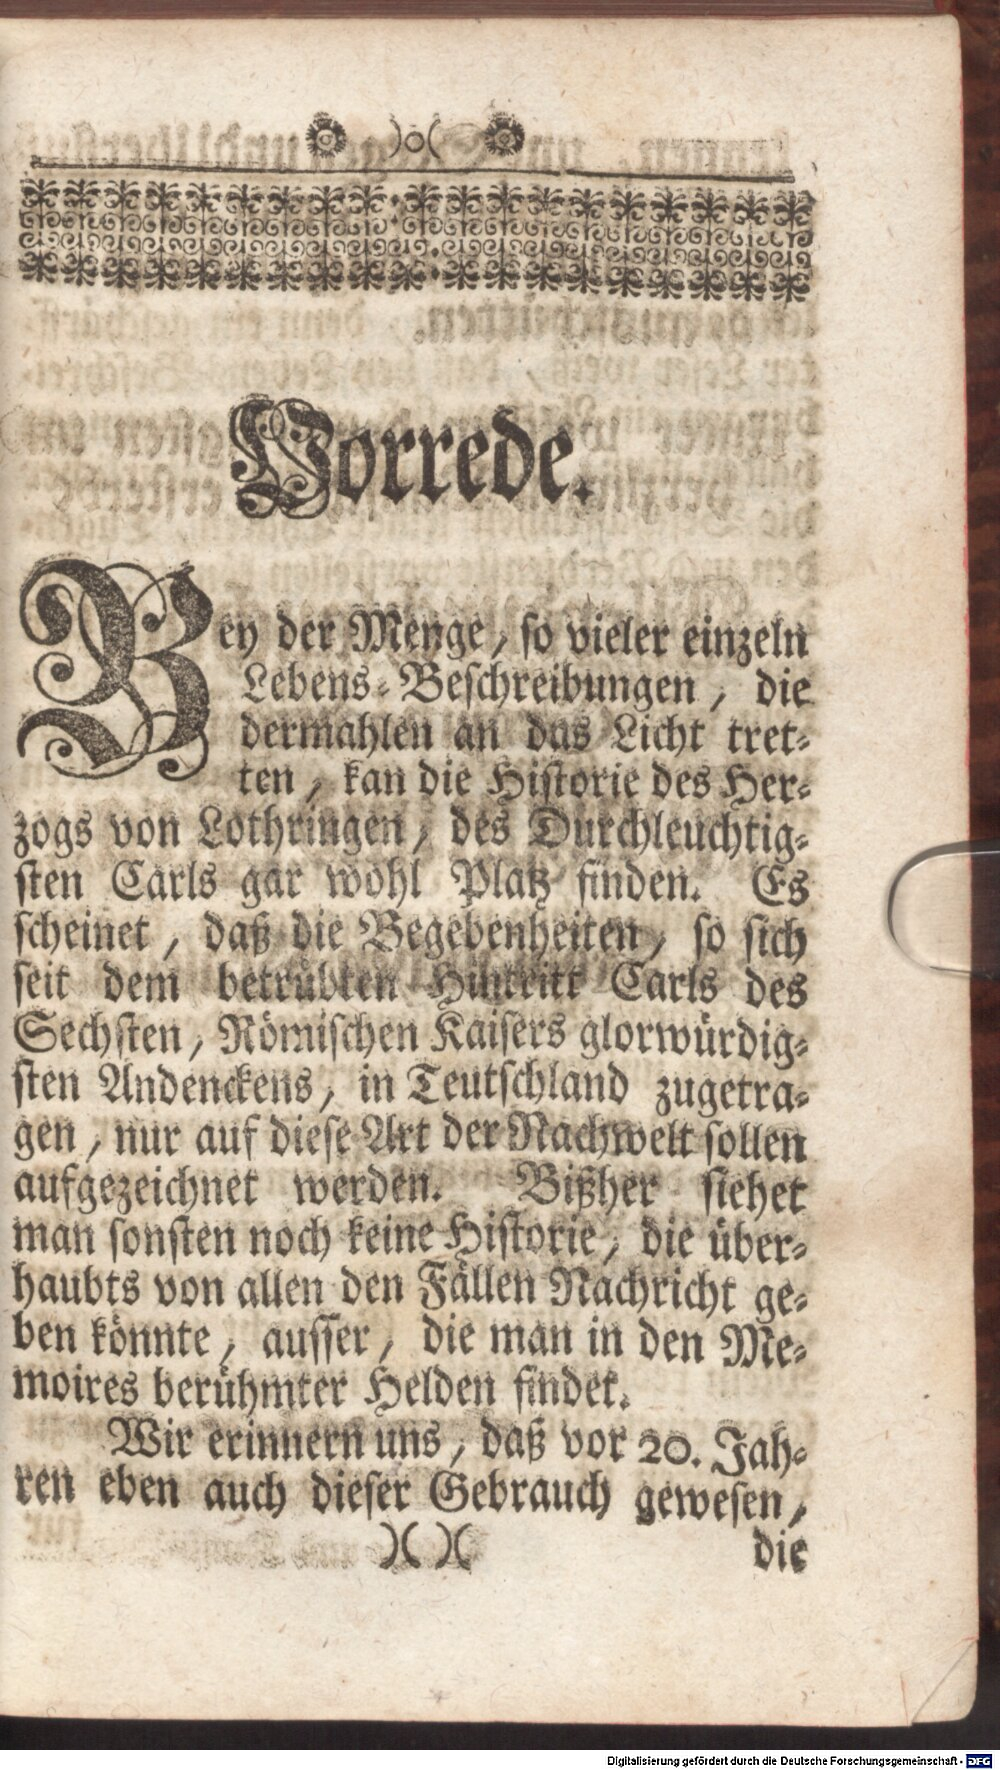 )o(
Vorrede.
Bey der Menge, so vieler einzeln
Lebens-Beschreibungen, die
dermahlen an das Licht tret-
ten, kan die Historie des Her-
zogs von Lothringen, des Durchleuchtig-
sten Carls gar wohl Platz finden. Es
scheinet, daß die Begebenheiten, so sich
seit dem betrübten Hintritt Carls des
Sechsten, Römischen Kaisers glorwürdig-
sten Andenckens, in Teutschland zugetra-
gen, nur auf diese Art der Nachwelt sollen
aufgezeichnet werden. Bißher siehet
man sonsten noch keine Historie, die über-
haubts von allen den Fällen Nachricht ge-
ben könnte, ausser, die man in den Me-
moires berühmter Helden findet.
Wir erinnern uns, daß vor 20. Jah-
ren eben auch dieser Gebrauch gewesen,
)( )( die
Digitalisierung gefördert durch die Deutsche Forschungsgemeinschaft - DFG